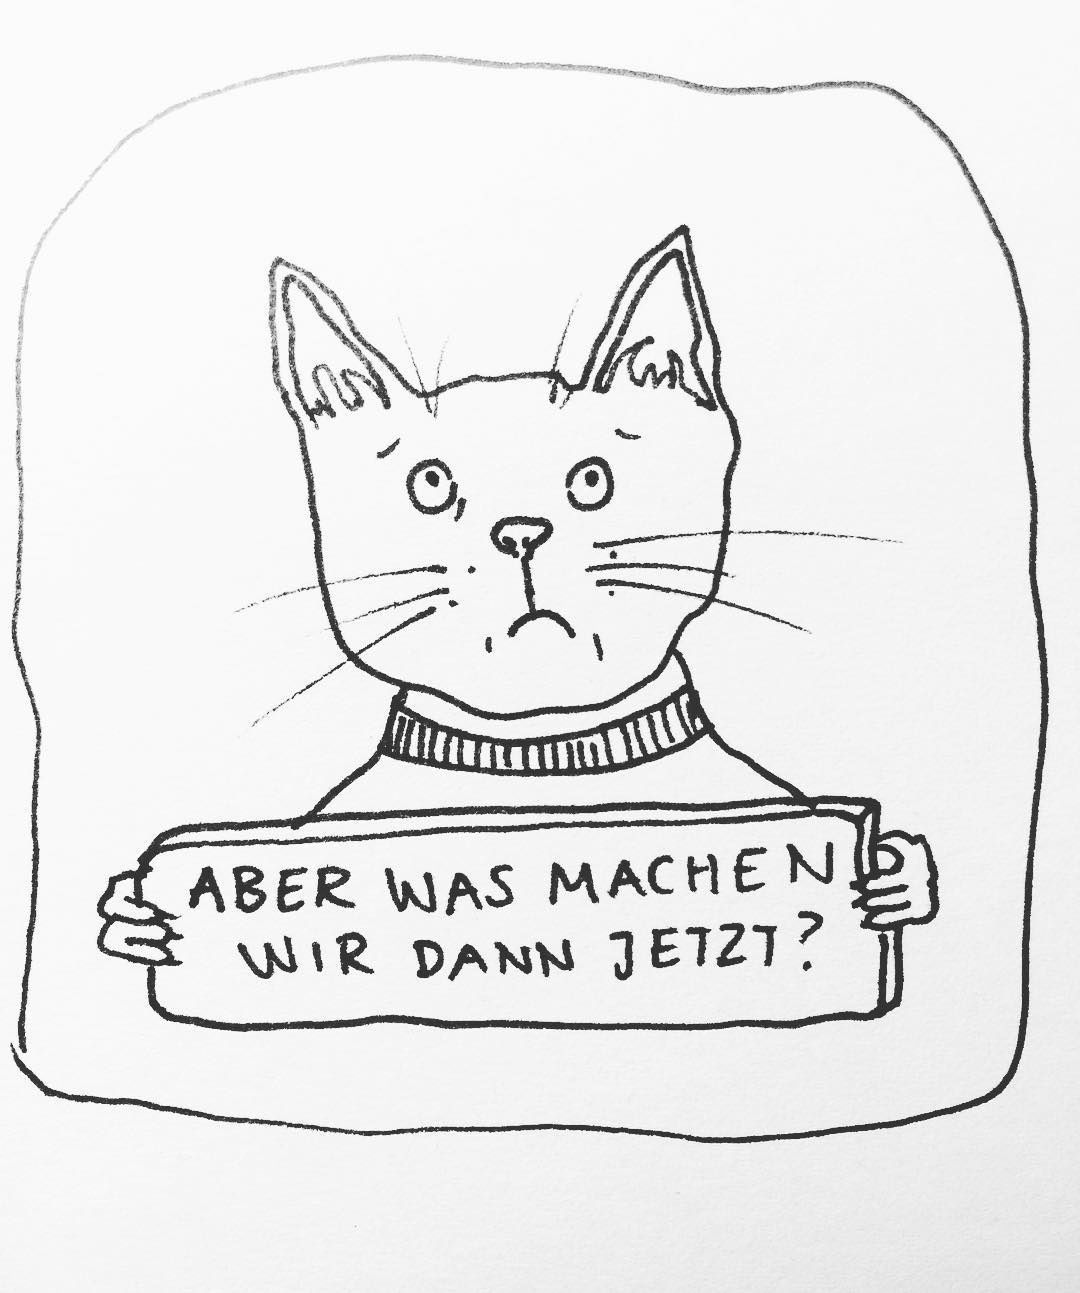 ABER WAS MACHEN
WIR DANN JETZT?